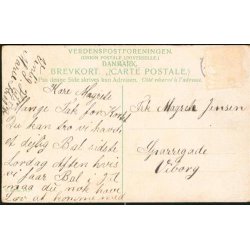 VERDENSPOSTFORENINGEN.
(UNION POSTALE UNIVERSELLE.)
DANMARK.
BREVKORT. (CARTE POSTALE.)
Paa denne Side skrives kun Adressen. Côté réservé à l'adresse.
Kære Magrete
Mange Tak for Kortet
du kan tro vi havde
et dejlig Bal sidste
Lørdag Aften hvis
vi faar Bal i
maa du nok have
Lov at komme med
Frk. Magrete Jensen
Sparregade
Viborg